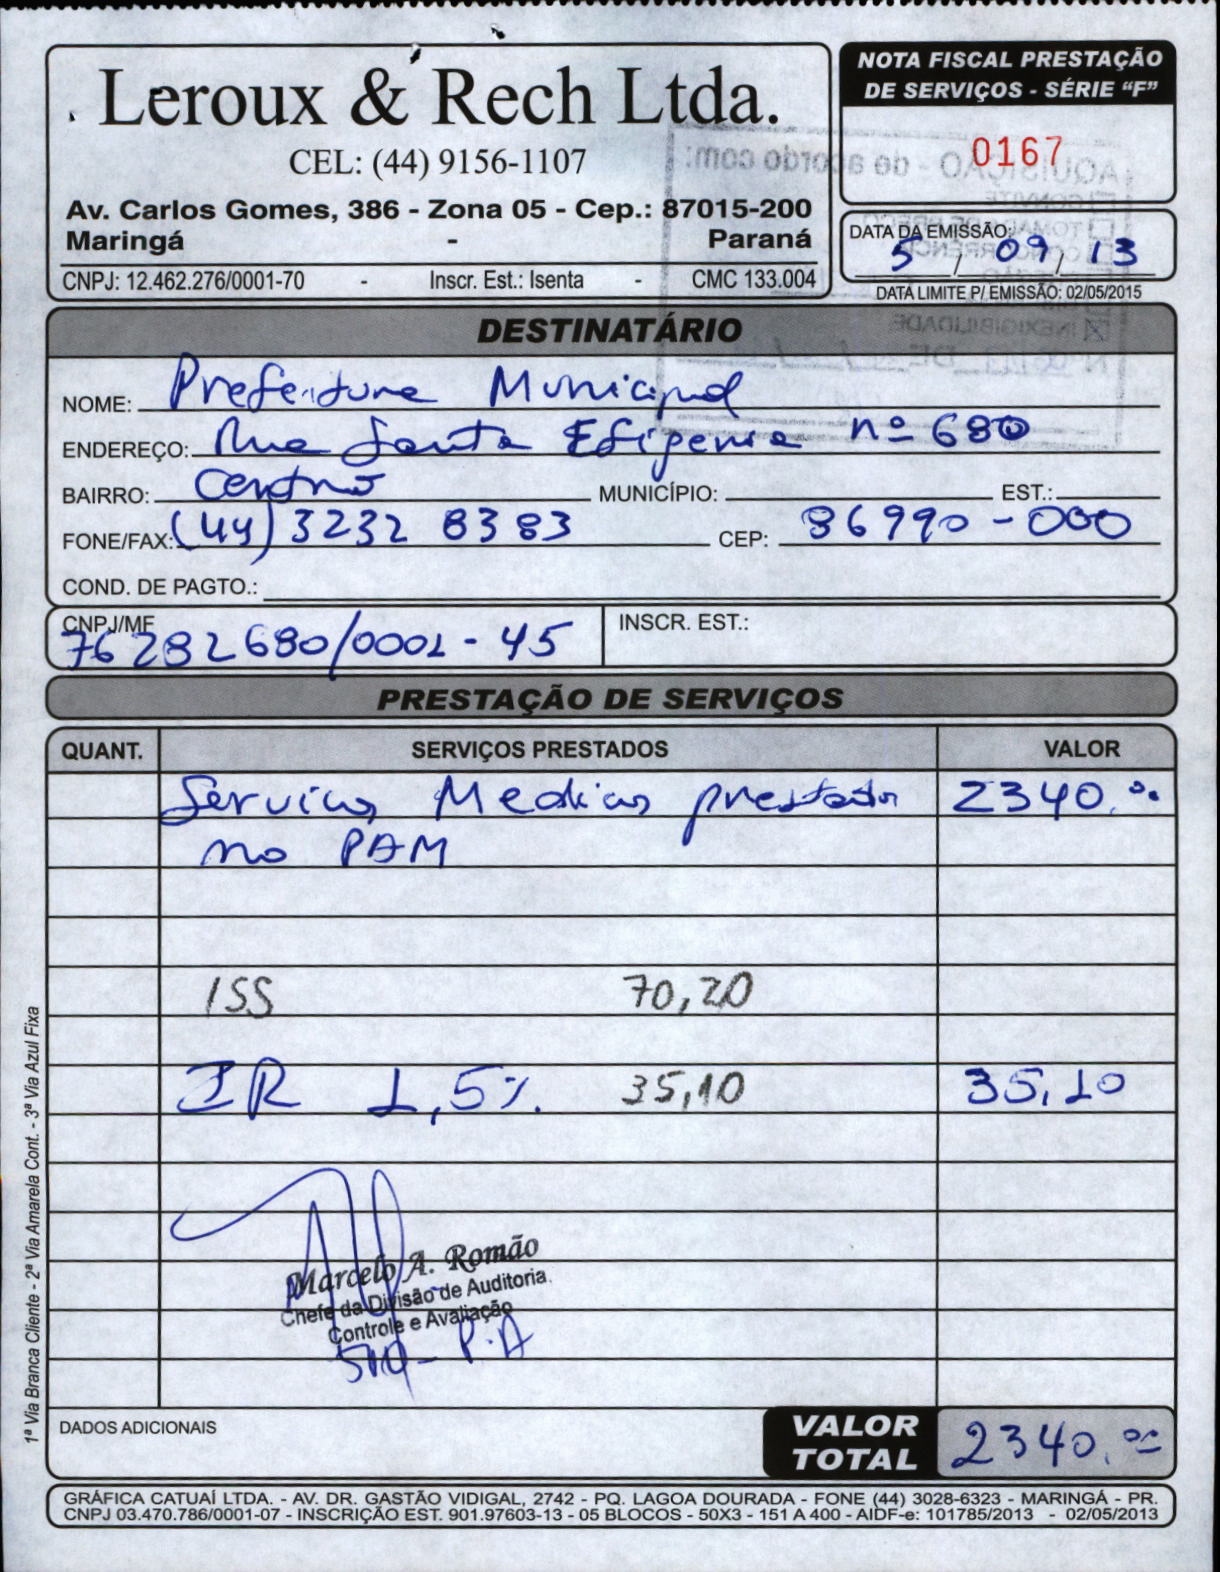 Leroux & Rech Ltda.
CEL: (44) 9156-1107
Av. Carlos Gomes, 386 - Zona 05 - Cep.: 87015-200
Maringá - Paraná
CNPJ: 12.462.276/0001-70 - Inscr. Est.: Isenta - CMC 133.004
NOTA FISCAL PRESTAÇÃO
DE SERVIÇOS - SÉRIE “F”
0167
DATA DA EMISSÃO:
5 / 09 / 13
DATA LIMITE P/ EMISSÃO: 02/05/2015
AQUISIÇÃO - de acordo com:
CONVITE
TOMADA DE PREÇO
CONCORRÊNCIA
INEXIGIBILIDADE
DESTINATÁRIO
NOME: Prefeitura Municipal
ENDEREÇO: Rua Santa Efigenia nº 680
BAIRRO: Centro MUNICÍPIO: EST.:
FONE/FAX: (44) 3232 8383 CEP: 86990-000
COND. DE PAGTO.:
CNPJ/MF 76282680/0001-45 INSCR. EST.:
PRESTAÇÃO DE SERVIÇOS
QUANT. SERVIÇOS PRESTADOS VALOR
Serviços Medicos prestados 2340,00
no PAM
ISS 70,20
IR 1,5% 35,10 35,10
Marcelo A. Romão
Chefe da Divisão de Auditoria
Controle e Avaliação
DADOS ADICIONAIS
VALOR TOTAL 2340,00
GRÁFICA CATUAÍ LTDA. - AV. DR. GASTÃO VIDIGAL, 2742 - PQ. LAGOA DOURADA - FONE (44) 3028-6323 - MARINGÁ - PR.
CNPJ 03.470.786/0001-07 - INSCRIÇÃO EST. 901.97603-13 - 05 BLOCOS - 50X3 - 151 A 400 - AIDF-e: 101785/2013 - 02/05/2013
1ª Via Branca Cliente - 2ª Via Amarela Cont. - 3ª Via Azul Fixa